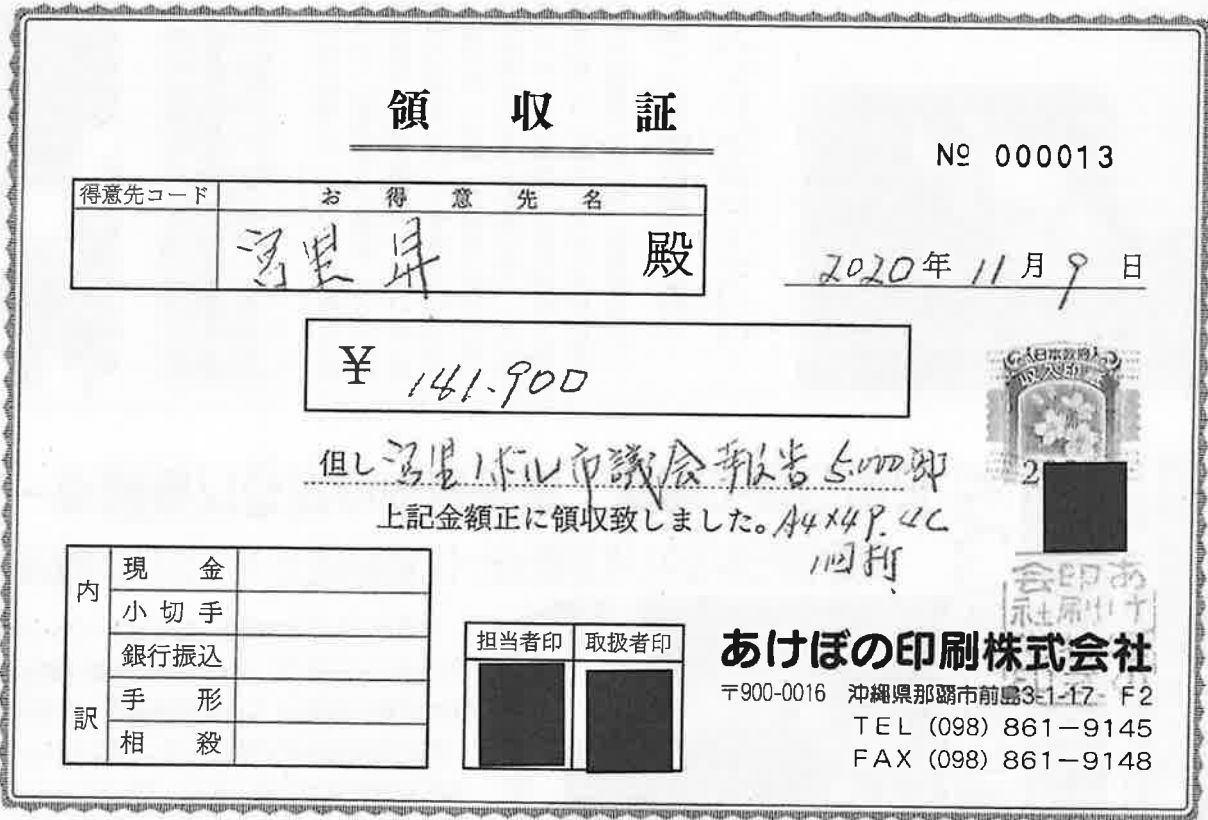 領収証
№ 000013
得意先コード お得意先名
宮里昇 殿
2020年11月9日
¥ 141.900
但し 宮里ノボル市議会報告 5.000部
上記金額正に領収致しました。A4×4P. 4C
1回折
日本政府
収入印紙
2
内訳
現金
小切手
銀行振込
手形
相殺
担当者印 取扱者印
あけぼの印刷株式会社
〒900-0016 沖縄県那覇市前島3-1-17 F2
TEL (098) 861-9145
FAX (098) 861-9148